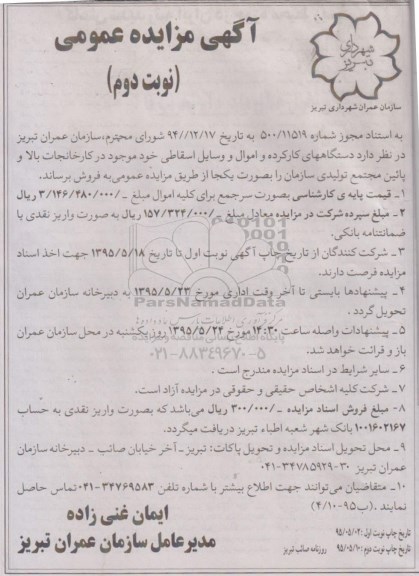 آگهی مزایده عمومی
(نوبت دوم)
شهرداری
تبریز
سازمان عمران شهرداری تبریز
به استناد مجوز شماره ۵۰۰/۱۱۵۱۹ به تاریخ ۹۴/۱۲/۱۷ شورای محترم، سازمان عمران تبریز
در نظر دارد دستگاههای کارکرده و اموال و وسایل اسقاطی خود موجود در کارخانجات بالا و
پائین مجتمع تولیدی سازمان را بصورت یکجا از طریق مزایده عمومی به فروش برساند.
۱ـ قیمت پایه ی کارشناسی بصورت سرجمع برای کلیه اموال مبلغ ـ/۳/۱۴۶/۴۸۰/۰۰۰ ریال
۲ـ مبلغ سپرده شرکت در مزایده معادل مبلغ ـ/۱۵۷/۳۲۴/۰۰۰ ریال به صورت واریز نقدی یا
ضمانتنامه بانکی.
۳ـ شرکت کنندگان از تاریخ چاپ آگهی نوبت اول تا تاریخ ۱۳۹۵/۵/۱۸ جهت اخذ اسناد
مزایده فرصت دارند.
۴ـ پیشنهادها بایستی تا آخر وقت اداری مورخ ۱۳۹۵/۵/۲۳ به دبیرخانه سازمان عمران
تحویل گردد.
۵ـ پیشنهادات واصله ساعت ۱۴:۳۰ مورخ ۱۳۹۵/۵/۲۴ روز یکشنبه در محل سازمان عمران
باز و قرائت خواهد شد.
۶ـ سایر شرایط در اسناد مزایده مندرج است.
۷ـ شرکت کلیه اشخاص حقیقی و حقوقی در مزایده آزاد است.
۸ـ مبلغ فروش اسناد مزایده ـ/۳۰۰/۰۰۰ ریال می‌باشد که بصورت واریز نقدی به حساب
۱۰۰۱۶۰۲۱۶۷ بانک شهر شعبه اطباء تبریز دریافت میگردد.
۹ـ محل تحویل اسناد مزایده و تحویل پاکات: تبریز ـ آخر خیابان صائب ـ دبیرخانه سازمان
عمران تبریز ۳۰-۳۴۷۸۵۹۲۹-۰۴۱
۱۰ـ متقاضیان می‌توانند جهت اطلاع بیشتر با شماره تلفن ۳۴۷۶۹۵۸۳-۰۴۱ تماس حاصل
نمایند. (ب۹۵-۴/۱۰)
ایمان غنی زاده
مدیرعامل سازمان عمران تبریز
تاریخ چاپ نوبت اول: ۹۵/۰۵/۰۴
تاریخ چاپ نوبت دوم: ۹۵/۰۵/۱۰ روزنامه صائب تبریز
ParsNamadData
۰۲۱-۸۸۳۴۹۶۷۰-۵